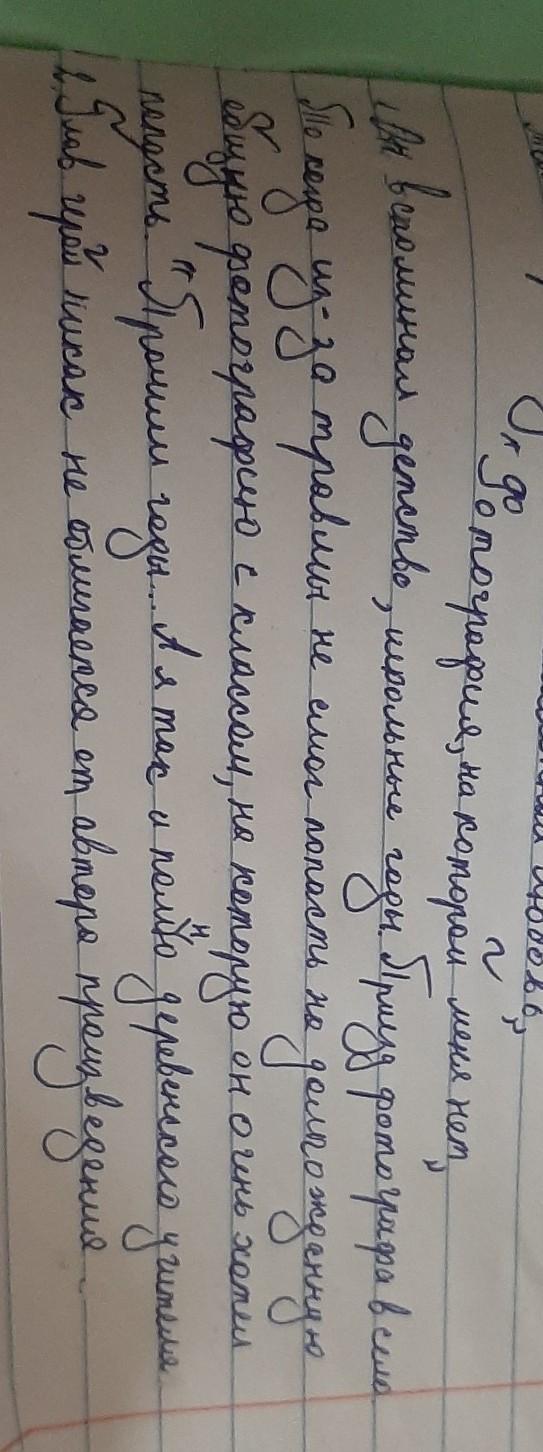 любовь"
"Фотография, на которой меня нет"
Он вспоминал детство, школьные годы. Приезд фотографа в село
То когда из-за травмы не смог попасть на долгожданную
общую фотографию с классом, на которую он очень хотел
попасть. "Прошли годы... А я так и помню деревенского учителя
Глав герой никак не отличается от автора произведения.